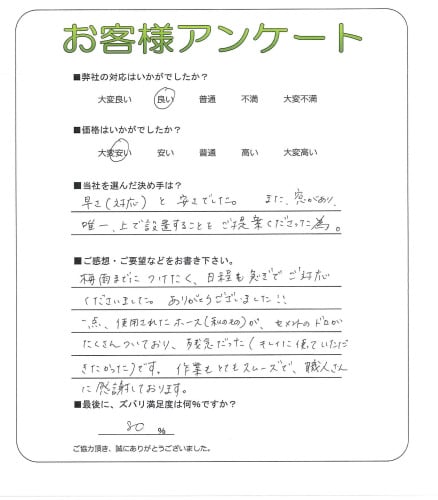 お客様アンケート
■弊社の対応はいかがでしたか？
大変良い 良い 普通 不満 大変不満
■価格はいかがでしたか？
大変安い 安い 普通 高い 大変高い
■当社を選んだ決め手は？
早さ(対応)と安さでした。 また、窓があり、
唯一、上で設置することをご提案くださった為。
■ご感想・ご要望などをお書き下さい。
梅雨までにつけたく、日程も急ぎでご対応
くださいました。ありがとうございました!!
一点、使用されたホース(私のもの)が、セメントのドロが
たくさんついており、残念だった(キレイに使っていただ
きたかった)です。 作業もとてもスムーズで、職人さん
に感謝しております。
■最後に、ズバリ満足度は何％ですか？
80 %
ご協力頂き、誠にありがとうございました。